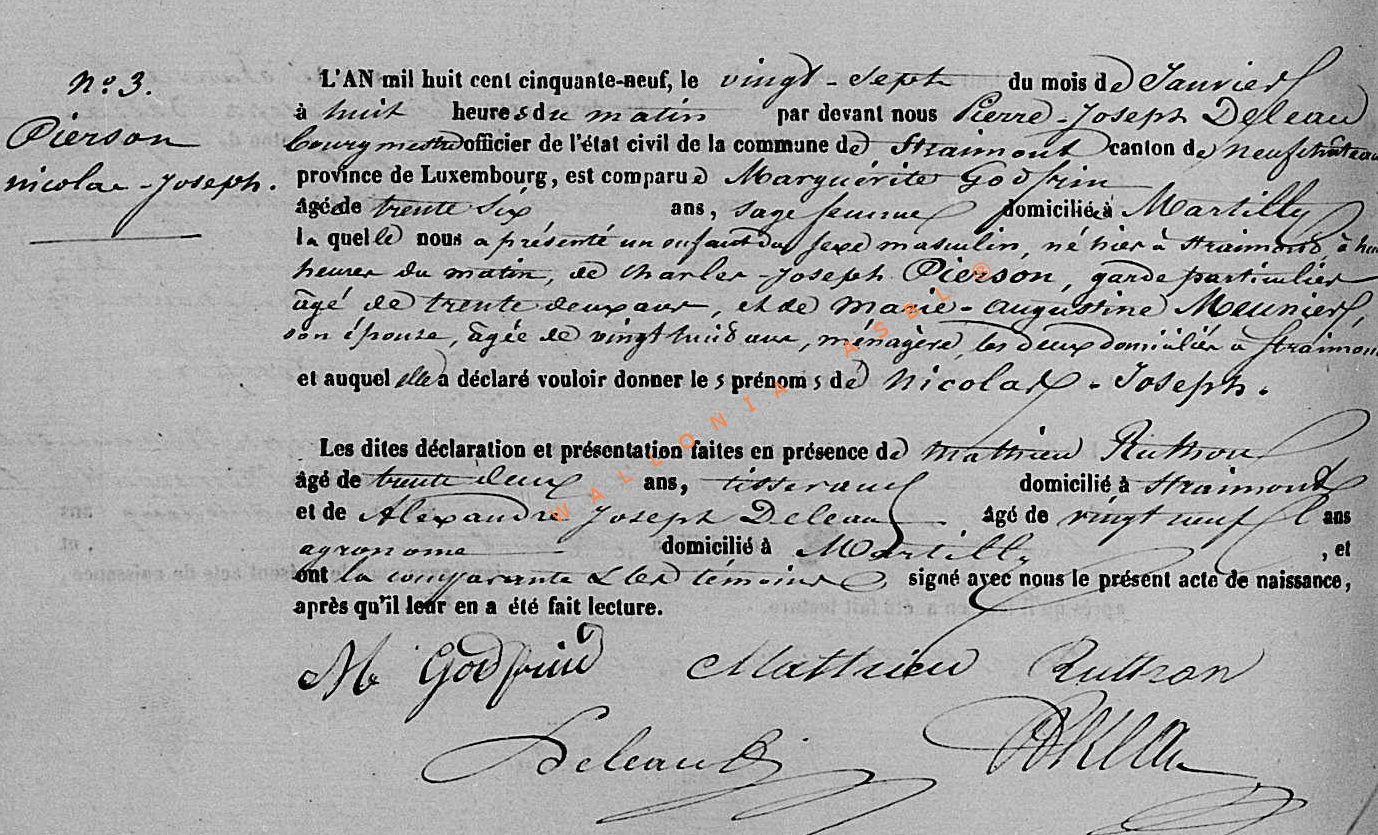 n.o 3.
Pierson
nicolas-Joseph.
L'AN mil huit cent cinquante-neuf, le vingt-sept du mois de Janvier
à huit heures du matin par devant nous Pierre-Joseph Deleau
bourgmestre officier de l'état civil de la commune de Straimont canton de neufchâteau
province de Luxembourg, est comparue Marguérite Godfrin
âgée de trente six ans, sage femme domiciliée à Martilly
laquelle nous a présenté un enfant du sexe masculin, né hier à Straimont, à huit
heures du matin, de Charles-Joseph Pierson, garde particulier
âgé de trente deux ans, et de Marie-Augustine Meunier,
son épouse, âgée de vingt huit ans, ménagère, les deux domiciliés à Straimont
et auquel elle a déclaré vouloir donner les prénoms de nicolas-Joseph.
Les dites déclaration et présentation faites en présence de mathieu Ruthson
âgé de trente deux ans, tisserand domicilié à Straimont
et de Alexandre Joseph Deleau âgé de vingt neuf ans
agronome domicilié à Martilly, et
ont la comparante & les témoins signé avec nous le présent acte de naissance,
après qu'il leur en a été fait lecture.
M Godfrin Matthieu
Deleau
WALLONIA ASBL ®